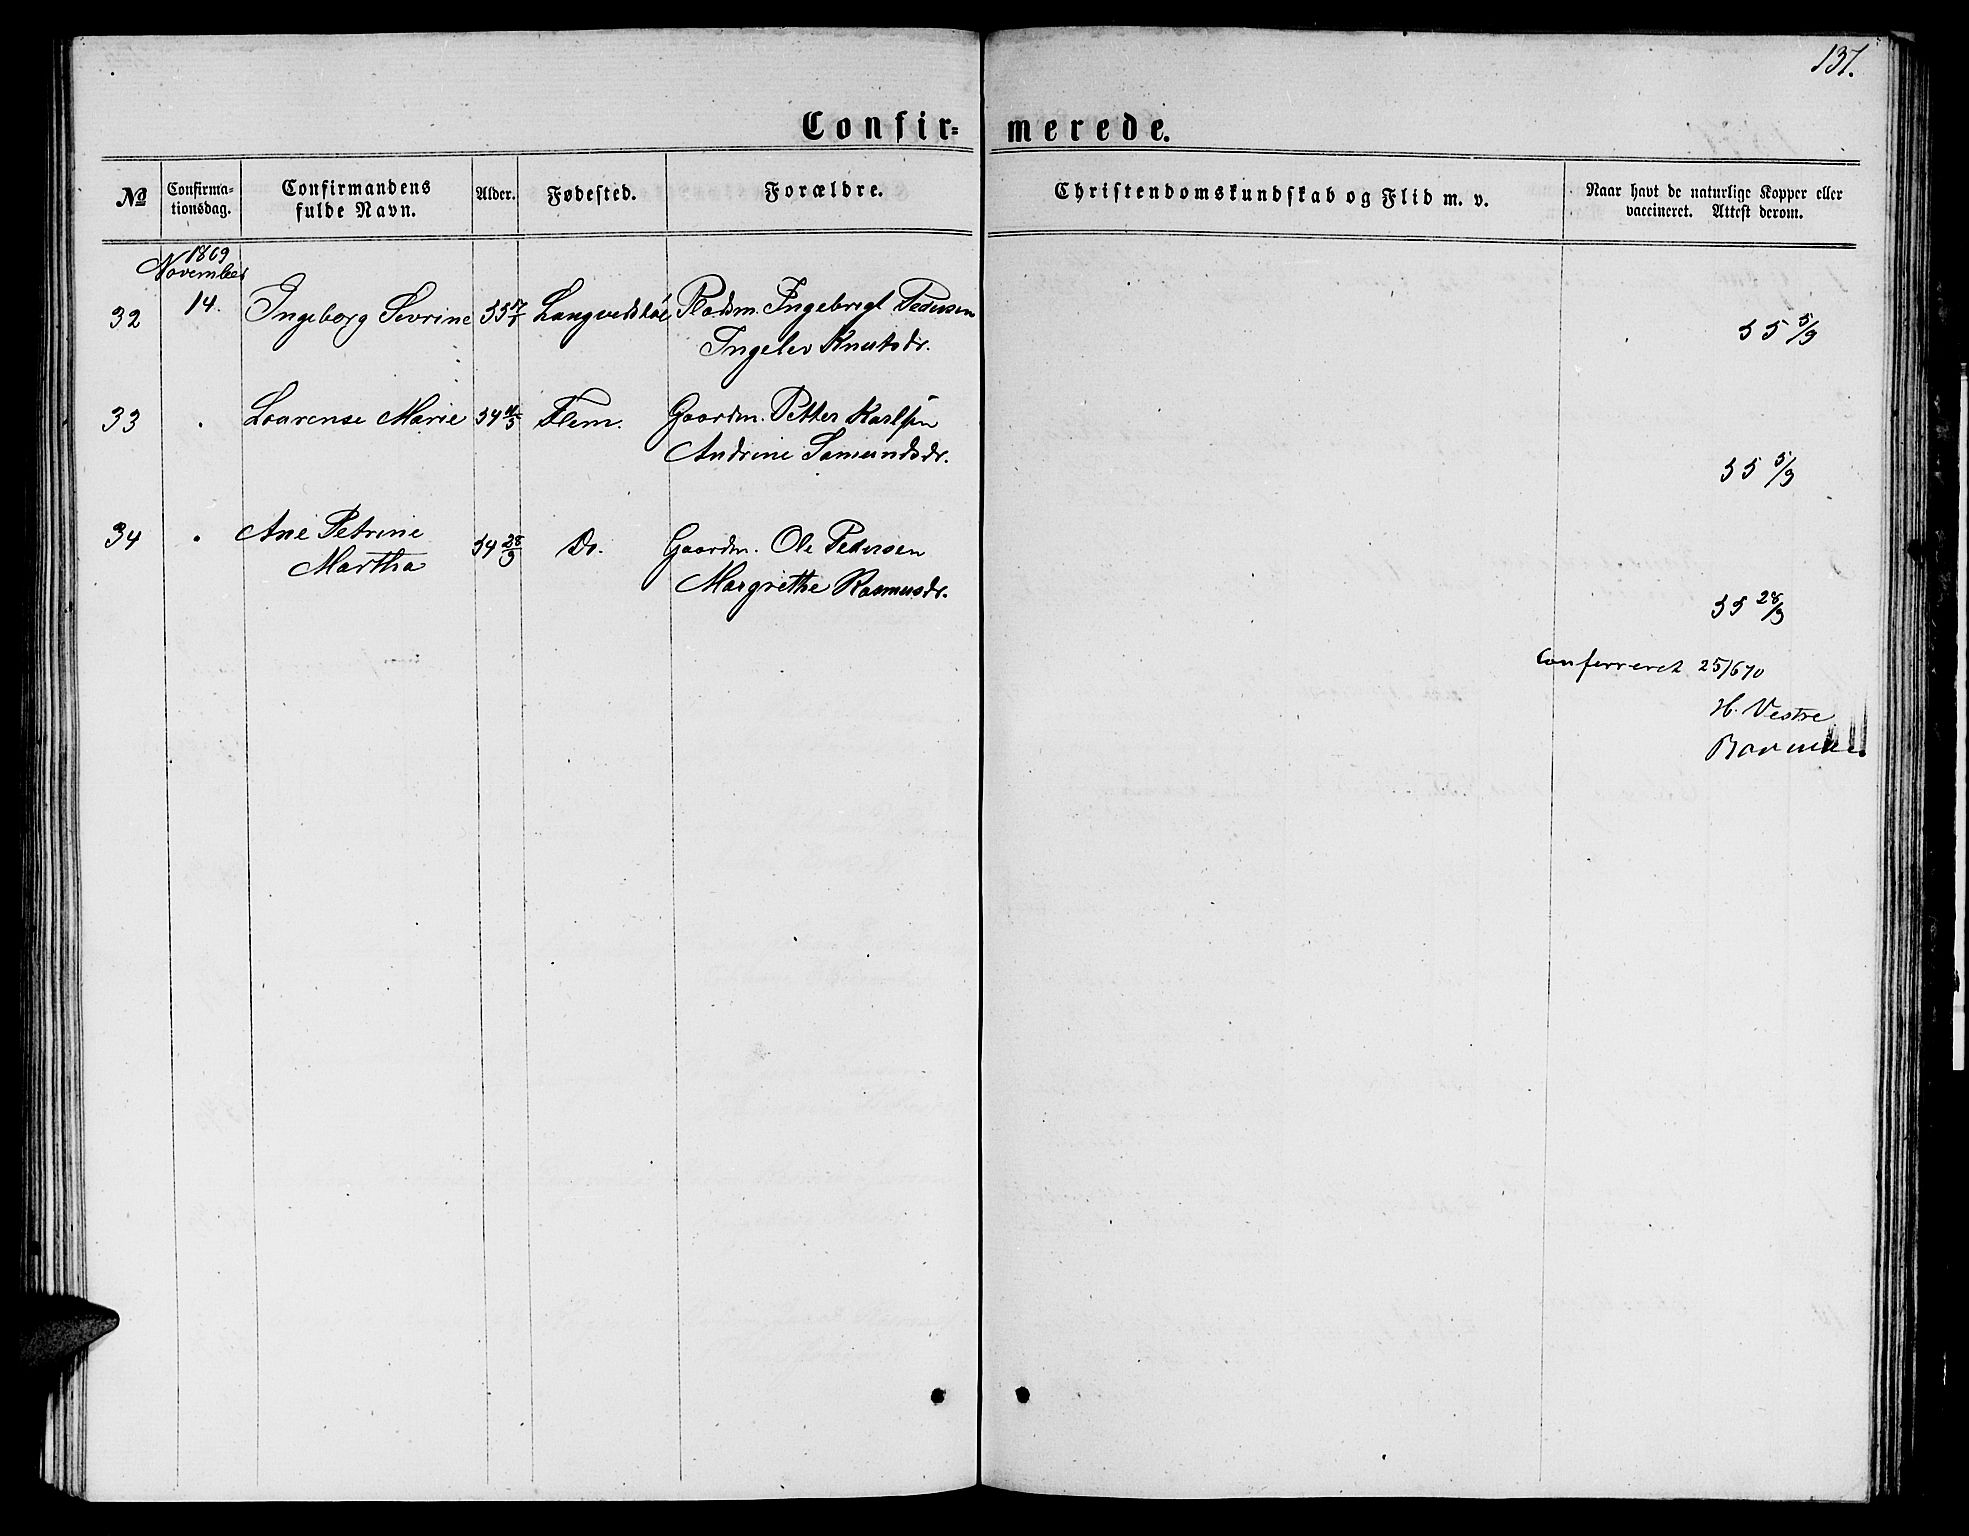 137.
Confir= merede.
No
Confirma-
tionsdag.
Confirmandens
fulde Navn.
Alder.
Fødested.
Forældre.
Christendomskundskab og Flid m. v.
Naar havt de naturlige Kopper eller
vaccineret. Attest derom.
1869
November
32 14. Ingeborg Sivrine 55 17/1 Pladsm. Ingebrigt Pedersen
Ingelev Knutsdr.
55 5/9
33 " Laurense Marie 54 Flem. Gaardm. Petter Karlsen
Andrine Samundsdr.
55 5/9
34 " Ane Petrine 54 28/9 Do. Gaardm. Ole Pedersen
Martha Margrethe Rasmusdr.
55 28/9
Conferreret 25/6 70
H. Vestre